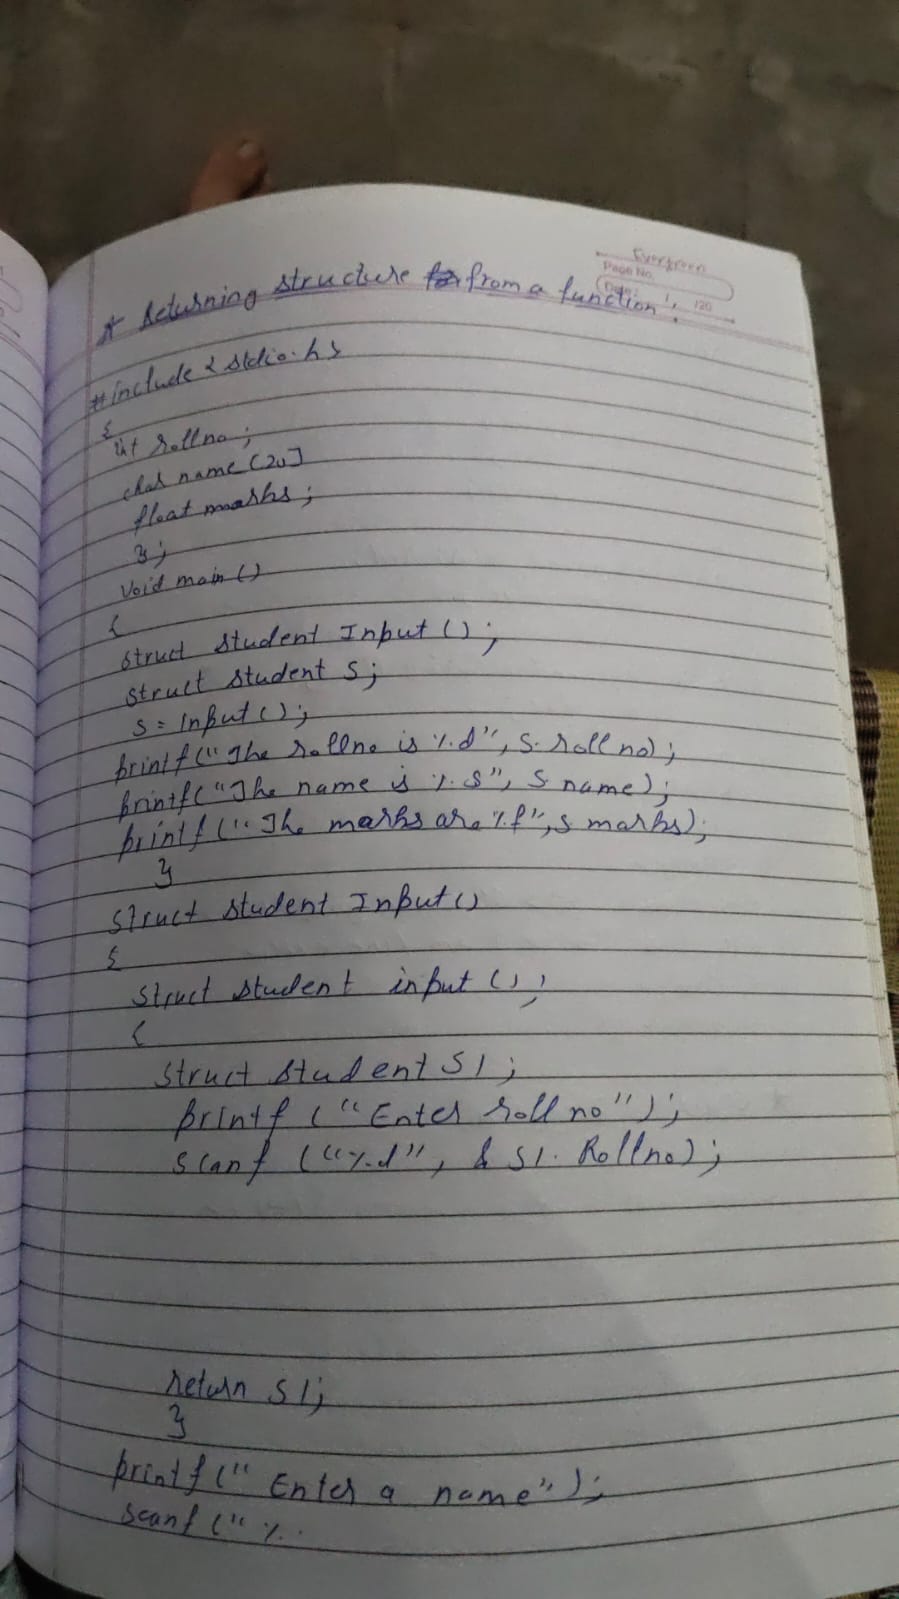 Evergreen
Page No.
Date: 1, 120
* Returning structure from a function.
#include < stdio.h>
{
int rollno;
char name [20]
float marks;
};
void main ()
{
struct student Input ();
struct student s;
s = Input ();
printf ("The rollno is %d", s. rollno);
printf ("The name is %s", s name);
printf ("The marks are %f", s marks);
}
struct student Input ()
{
struct student input ();
{
struct student S1;
printf ("Enter roll no");
scanf ("%d", & S1. Rollno);
return S1;
}
printf (" Enter a name");
scanf (" %.